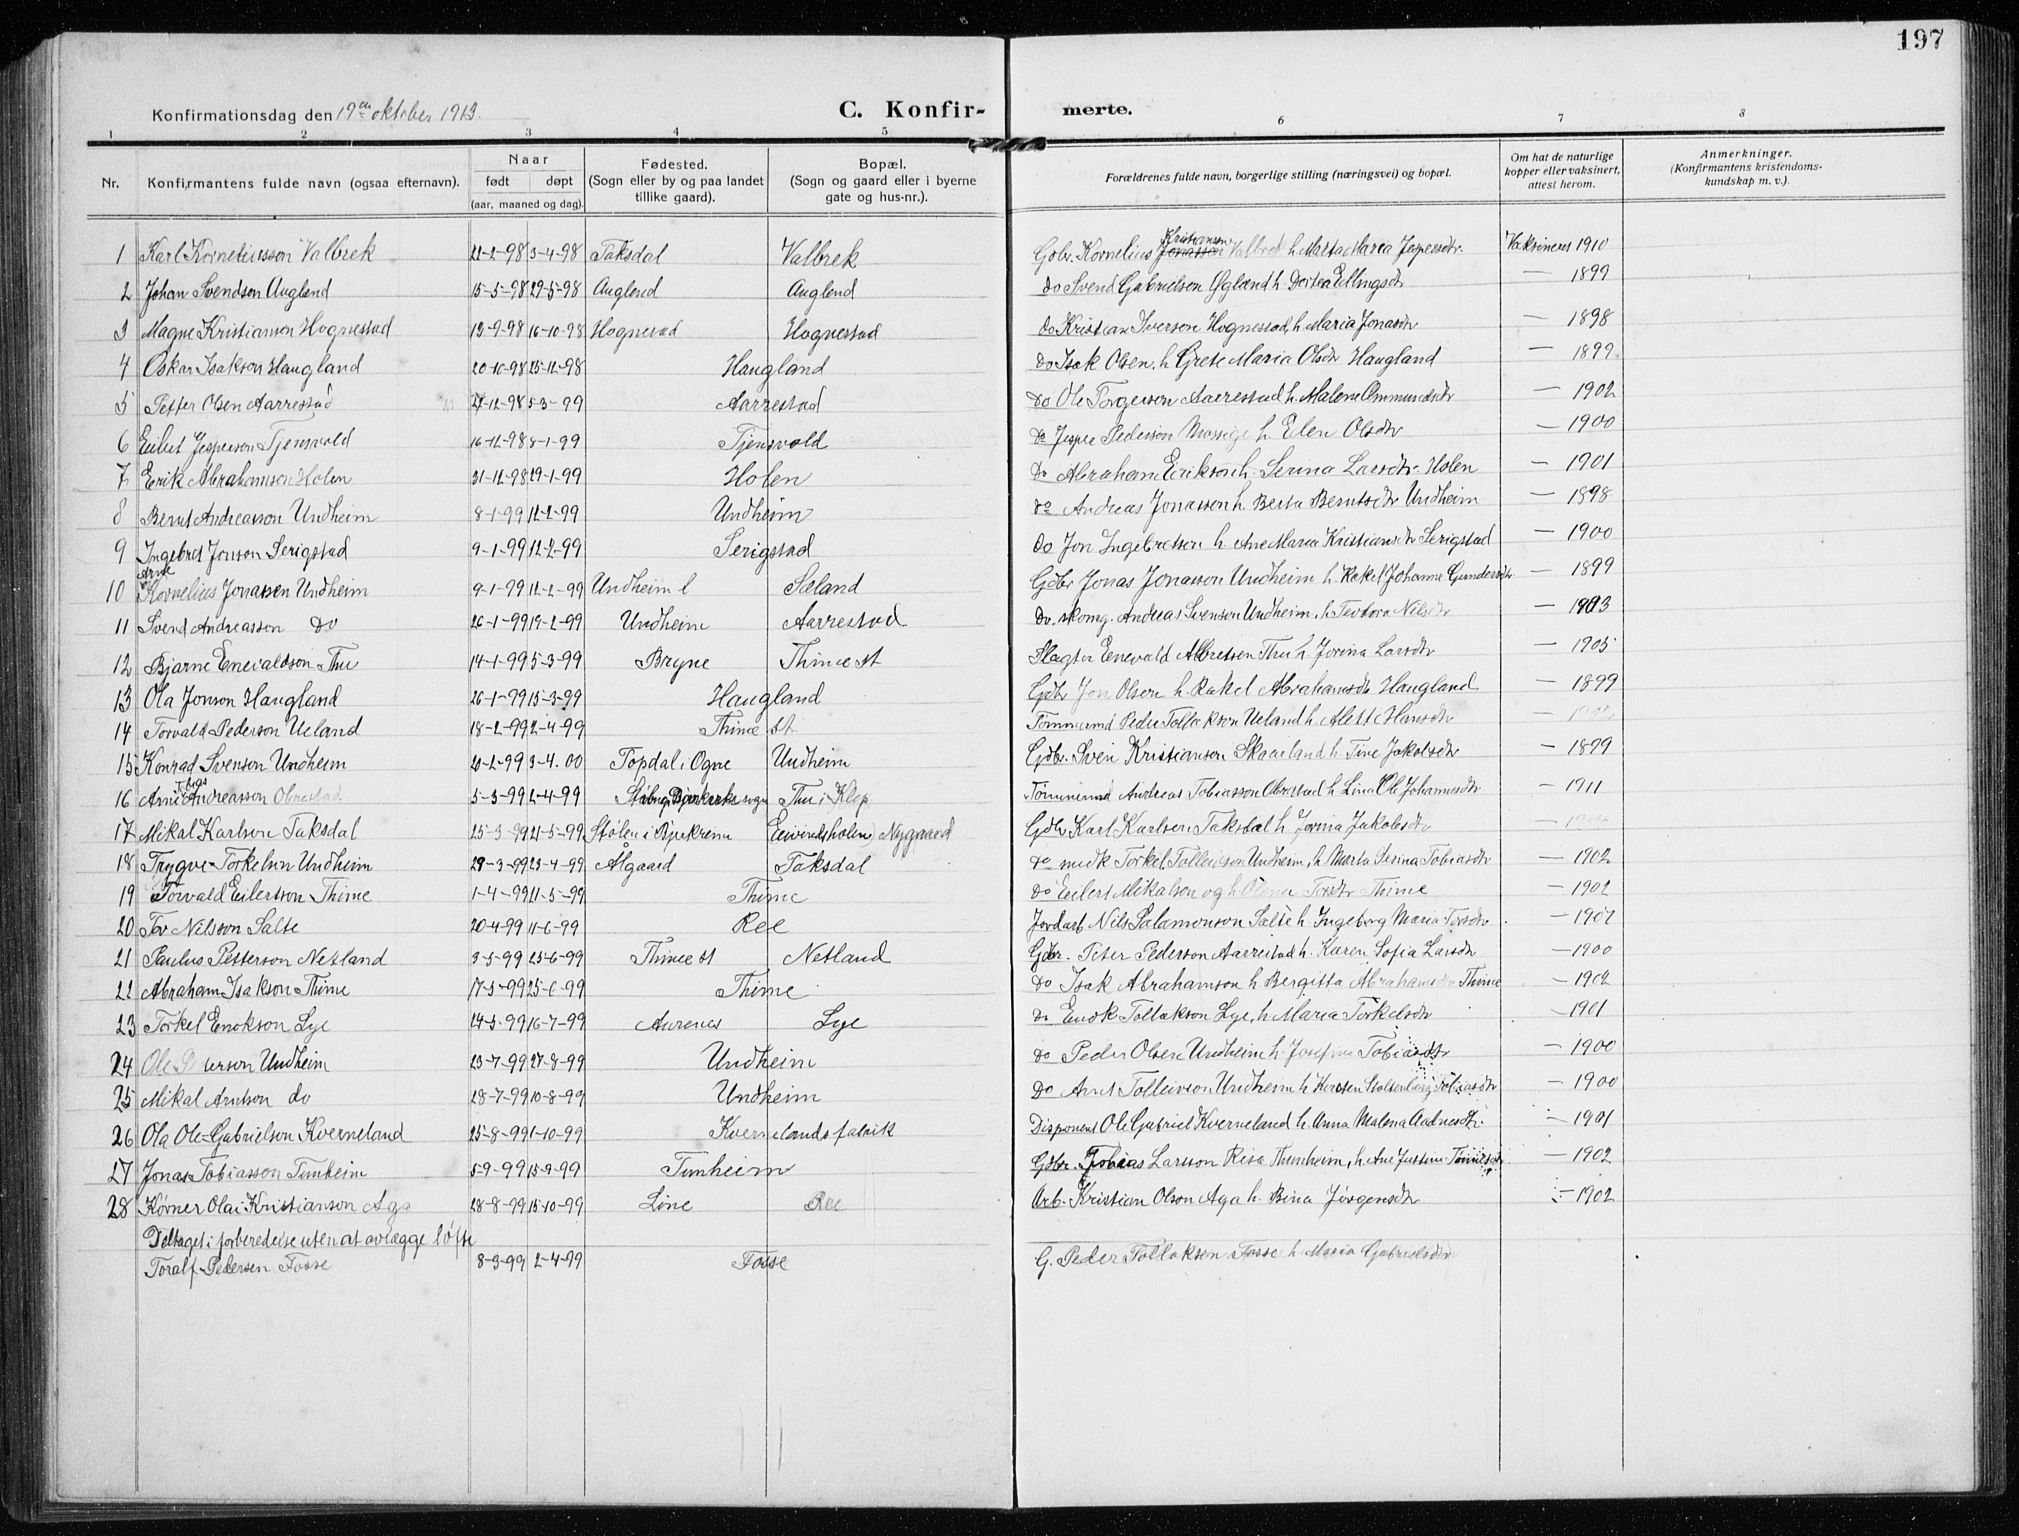 197
Konfirmationsdag den 19de oktober 1913. C. Konfir- merte.
1 2 3 4 5 6 7 8
Nr. Konfirmantens fulde navn (ogsaa efternavn). Naar født døpt (aar, maaned og dag). Fødested. (Sogn eller by og paa landet tillike gaard). Bopæl. (Sogn og gaard eller i byerne gate og hus-nr.). Forældrenes fulde navn, borgerlige stilling (næringsvei) og bopæl. Om hat de naturlige kopper eller vaksinert, attest herom. Anmerkninger. (Konfirmantens kristendoms- kundskap m. v.).
1 Karl Korneliusson Valbrek 21-2-98 3-4-98 Taksdal Valbrek Gbr. Kornelius Kristianson Jonasson Valbrek h. Marta Maria Jespersdtr. Vaksineret 1910
2 Johan Svendson Augland 15-5-98 29-5-98 Auglend Auglend Do Svend Gabrielson Øgland h. Dortea Ellingsdtr — 1899
3 Magne Kristianson Hognestad 13-9-98 16-10-98 Hognestad Hognestad do Kristian Iverson Hognestad, h. Maria Jonasdtr — 1898
4 Oskar Isakson Haugland 20-10-98 25-12-98 Haugland Do Isak Olsen. h Grete Maria Olsdtr Haugland — 1899.
5 Petter Olsen Aarrestad 27-12-98 5-3-99 Aarrestad Do Ole Torgerson Aarrestad h. Malene Ommundsdtr — 1902
6 Eilert Jesperson Tjensvold 16-12-98 8-1-99 Tjensvold Do Jesper Pederson Mossige h. Elen Olsdtr — 1900
7 Erik Abrahamson Holen 31-12-98 29-1-99 Holen Do Abraham Erikson h. Serina Larsdtr Holen — 1901
8 Bernt Andreasson Undheim 8-1-99 12-2-99 Undheim Do Andreas Jonasson h. Berta Berntsdtr Undheim — 1898
9 Ingebret Jonson Serigstad 9-1-99 12-2-99 Serigstad Do Jon Ingebretson h Ane Maria Kristiansdtr Serigstad — 1900
10 Arne Kornelius Jonassen Undheim 9-1-99 12-2-99 Undheim Sæland Gdbr Jonas Jonasson Undheim h. Rakel Johanne Gundersdtr — 1899
11 Svend Andreasson Do 26-1-99 19-2-99 Undheim Aarrestad Do. skomg. Andreas Svenson Undheim, h. Teodora Nilsdtr — 1913
12 Bjarne Enevaldson Thu 14-1-99 5-3-99 Bryne Thime st Slagter Enevald Albretsen Thu h. Jorina Larsdtr — 1905
13 Ola Jonson Haugland 26-1-99 15-3-99 Haugland Gdbr Jon Olsen h. Rakel Abrahamsdtr Haugland — 1899
14 Torvald Pederson Ueland 18-2-99 2-4-99 Thime st. Tømmermd Peder Tollakson Ueland h. Alett Hansdtr —
15 Konrad Svenson Undheim 20-2-99 3-4.00 Topdal i Ogne Undheim Gdbr. Sven Kristianson Skaarland h. Tine Jakobsdtr — 1899
16 Arne Andreasson Obrestad 5-3-99 2-4-99 Thu i Klep Tømmermd Andreas Tobiasson Obrestad h Lina Ole Johannesdtr — 1911
17 Mikal Karlson Taksdal 25-3-99 21-5-99 Stølen i Bjerkreim Eivindsholen, Nygaard Gdbr Karl Karlsen Taksdal h Jorina Jakobsdtr
18 Trygve Torkelson Undheim 29-3-99 23-4-99 Algaard Taksdal do Torkel Tolleivson Undheim, h Marta Serina Tobiasdtr — 1902
19 Torvald Eilertson Thime 1-4-99 21-5-99 Thime Do Eilert Mikalsen og h Olena Torsdtr Thime — 1902
20 Tor Nilsson Salte 20-4-99 11-6-99 Ree Jordarb Nils Salamonson Salte h Ingeborg Maria Torsdtr — 1902
21 Paulus Petterson Netland 3-5-99 25-6-99 Thime st Netland Gdbr. Peter Pederson Aarrestad h. Karen Sofia Larsdtr — 1900
22 Abraham Isakson Thime 17-5-99 25-6-99 Thime Do Isak Abrahamson h Bergitta Abrahamsdtr Thime — 1902
23 Torkel Enokson Lye 24-5-99 16-7-99 Aurenes Lye Do Enok Tollakson Lye, h Maria Torkelsdtr — 1901
24 Ole Undheim 23-7-99 27-8-99 Undheim Do Peder Olsen Undheim h. Josefine Tobiasdtr — 1900
25 Mikal Arntson do 28-7-99 10-8-99 Undheim Do Arnt Tolleivson Undheim h Tobiasdtr — 1900
26 Ola Ole-Gabrielson Kverneland 25-8-99 1-10-99 Kvernelands fabrik Disponent Ole Gabriel Kverneland h. Anna Malena Aadnesdtr. — 1901
27 Jonas Tobiasson Tunheim 5-9-99 15-9-99 Tunheim Gdbr. Tobias Larsson Risa Thunheim, h. Ane Justine Tønnesdtr — 1902
28 Kørner Olai Kristianson Aga 28-8-99 15-10-99 Line Ree Arb. Kristian Olson Aga h. Bina Jørgensdtr — 1902
Deltaget i forberedelse uten at avlægge løfte
Toralf Pedersen Fosse 8-3-99 2-4-99 Fosse G. Peder Tollaksen Fosse h. Maria Gabrielsdtr